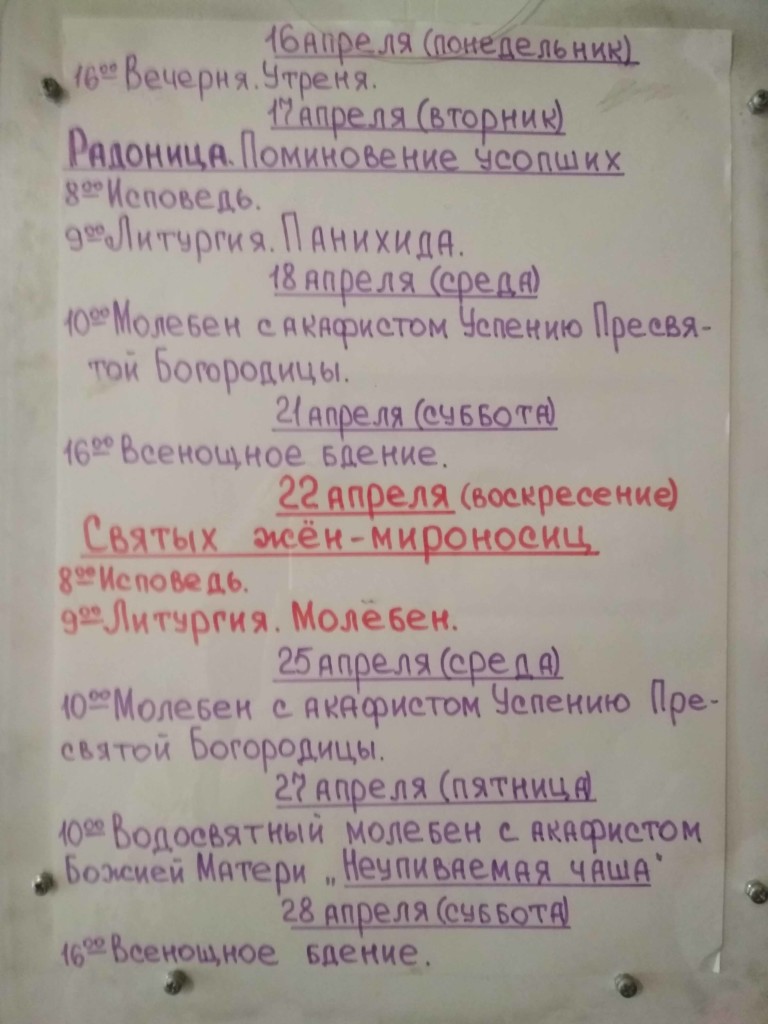 16 апреля (понедельник)
16⁰⁰ Вечерня. Утреня.
17 апреля (вторник)
Радоница. Поминовение усопших
8⁰⁰ Исповедь.
9⁰⁰ Литургия. Панихида.
18 апреля (среда)
10⁰⁰ Молебен с акафистом Успению Пресвя-
той Богородицы.
21 апреля (суббота)
16⁰⁰ Всенощное бдение.
22 апреля (воскресение)
Святых жён-мироносиц
8⁰⁰ Исповедь.
9⁰⁰ Литургия. Молебен.
25 апреля (среда)
10⁰⁰ Молебен с акафистом Успению Пре-
святой Богородицы.
27 апреля (пятница)
10⁰⁰ Водосвятный молебен с акафистом
Божией Матери „Неупиваемая чаша“
28 апреля (суббота)
16⁰⁰ Всенощное бдение.